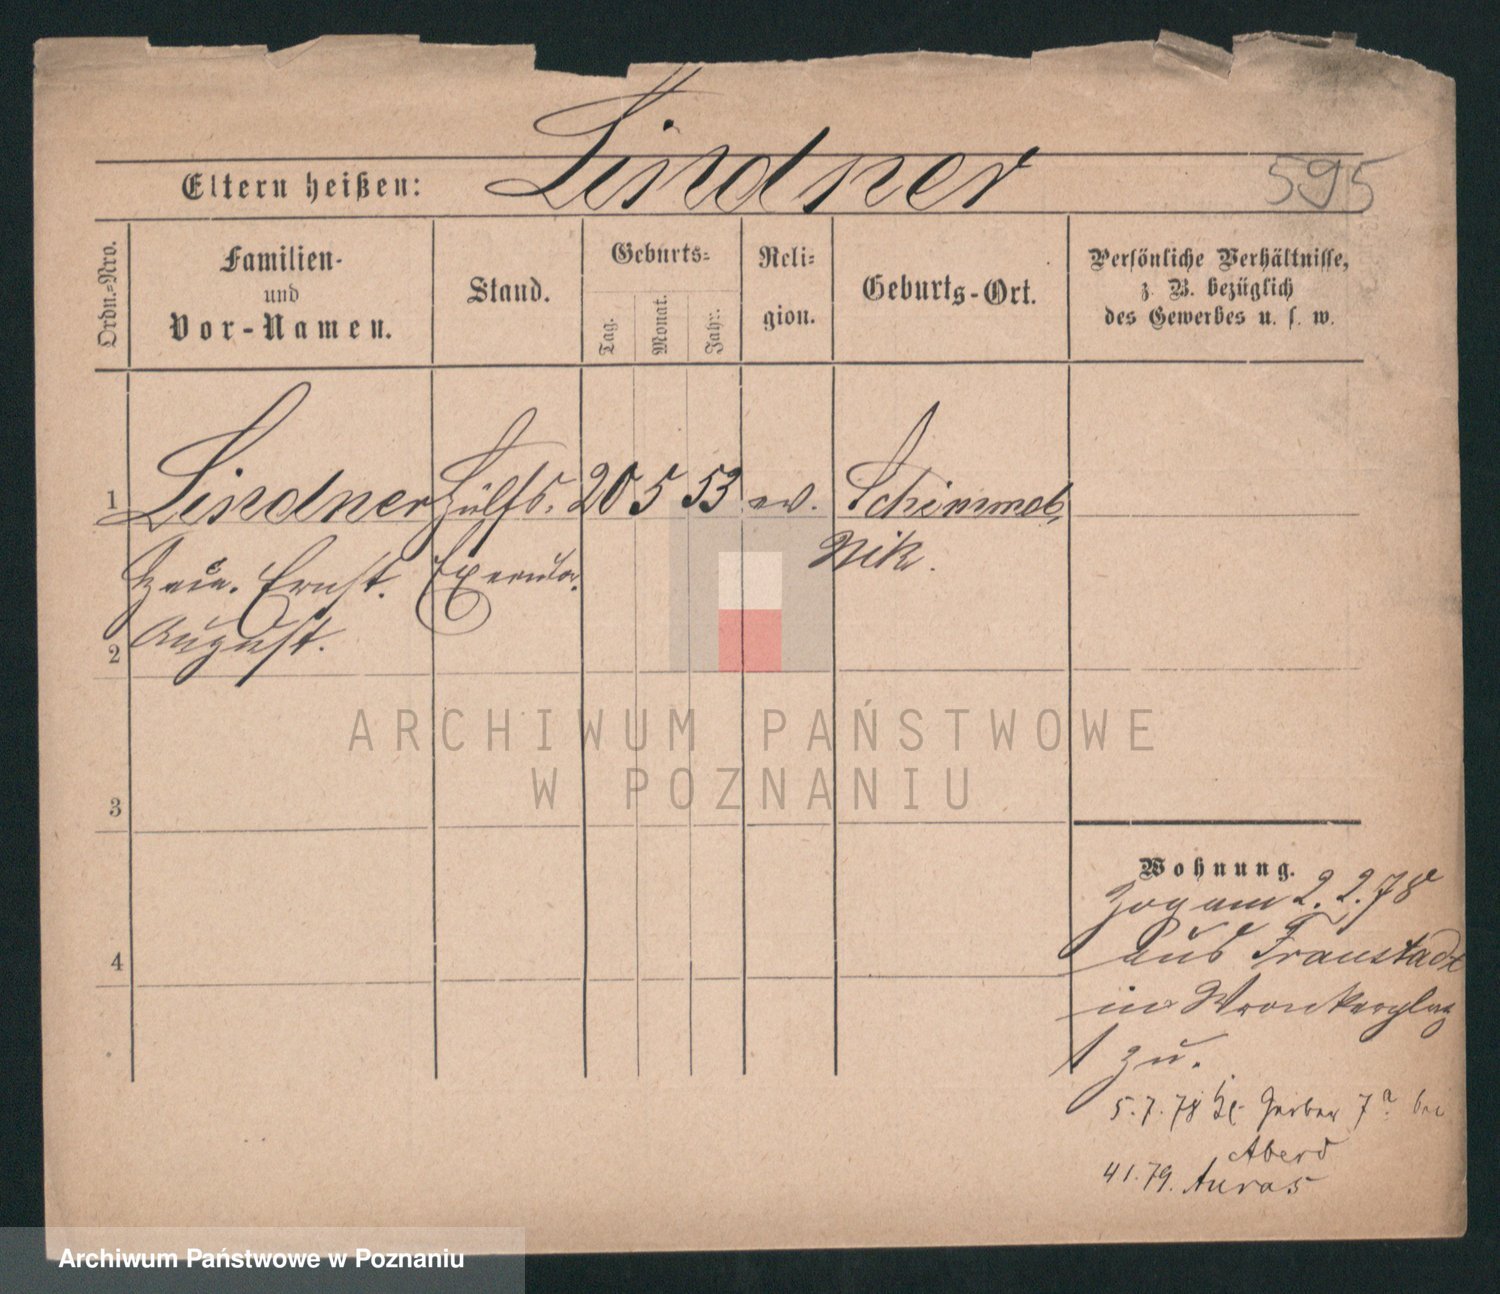 Lindner
595
Eltern heißen:
Ordn.-Nro.
Familien-
und
Vor-Namen.
Stand.
Geburts-
Tag.
Monat.
Jahr.
Reli-
gion.
Geburts-Ort.
Persönliche Verhältnisse,
z. B. bezüglich
des Gewerbes u. s. w.
1 Lindner Hülfs. 20 5 53 ev. Schimmel,
Nik.
Ernst. Executor.
August.
2
ARCHIWUM PAŃSTWOWE
W POZNANIU
3
Wohnung.
Zog am 2.2.78
aus Fraustadt
in Wronkerplatz
4
1 zu.
5.7.78 Kl. Gerber 7a bei
Aberd
4 1. 79. Auras
Archiwum Państwowe w Poznaniu